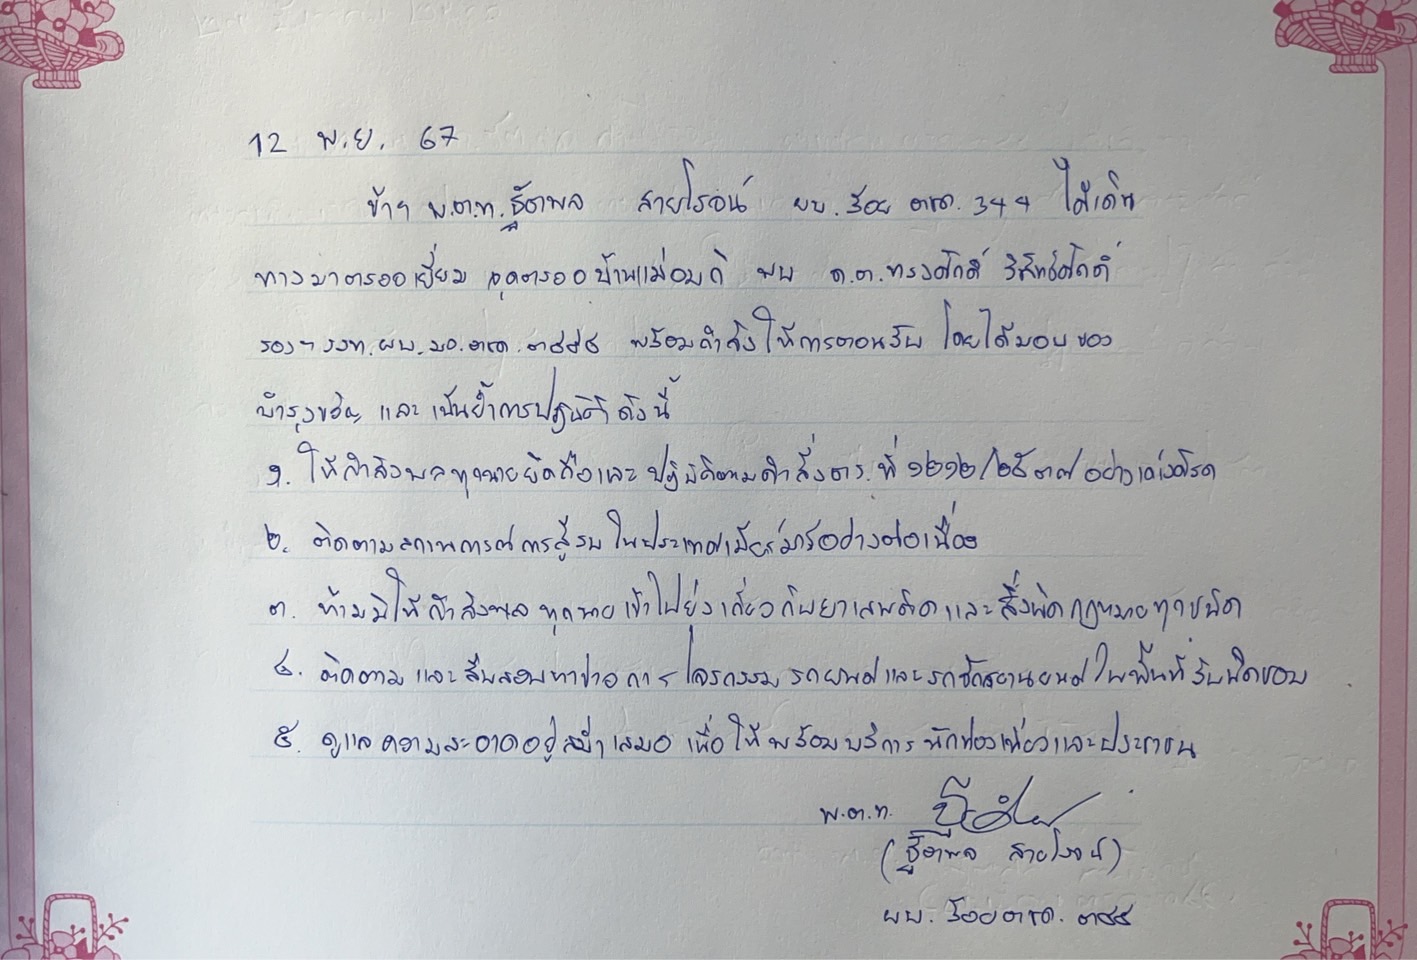 12 พ.ย. 67
ข้าฯ พ.ต.ท.ฐิตพล สายโรจน์ ผบ.ร้อย ตชด.344 ได้เดิน
ทางมาตรวจเยี่ยม จุดตรวจบ้านแม่อมกิ พบ ด.ต.ทรงศักดิ์ วิสิทธ์ศักดิ์
รองฯ รรท.ผบ.มว.ตชด.๓๔๔๔ พร้อมกำลังให้การตอนรับ โดยได้มอบของ
บำรุงขวัญ และเน้นย้ำการปฏิบัติ ดังนี้
๑. ให้กำลังพลทุกนายยึดถือและปฏิบัติตามคำสั่ง ตร. ที่ ๑๒๑๒/๒๕๓๗ อย่างเคร่งครัด
๒. ติดตามสถานการณ์การสู้รบในประเทศเมียร์มาร์อย่างต่อเนื่อง
๓. ห้ามมิให้กำลังพลทุกนายเข้าไปยุ่งเกี่ยวกับยาเสพติดและสิ่งผิดกฎหมายทุกชนิด
๔. ติดตามและสืบสอบหาข่าวการโจรกรรมรถยนต์และรถจักรยานยนต์ในพื้นที่รับผิดชอบ
๕. ดูแลความสะอาดอยู่สม่ำเสมอ เพื่อให้พร้อมบริการนักท่องเที่ยวและประชาชน
พ.ต.ท.
(ฐิตพล สายโรจน์)
ผบ.ร้อย ตชด.๓๔๔